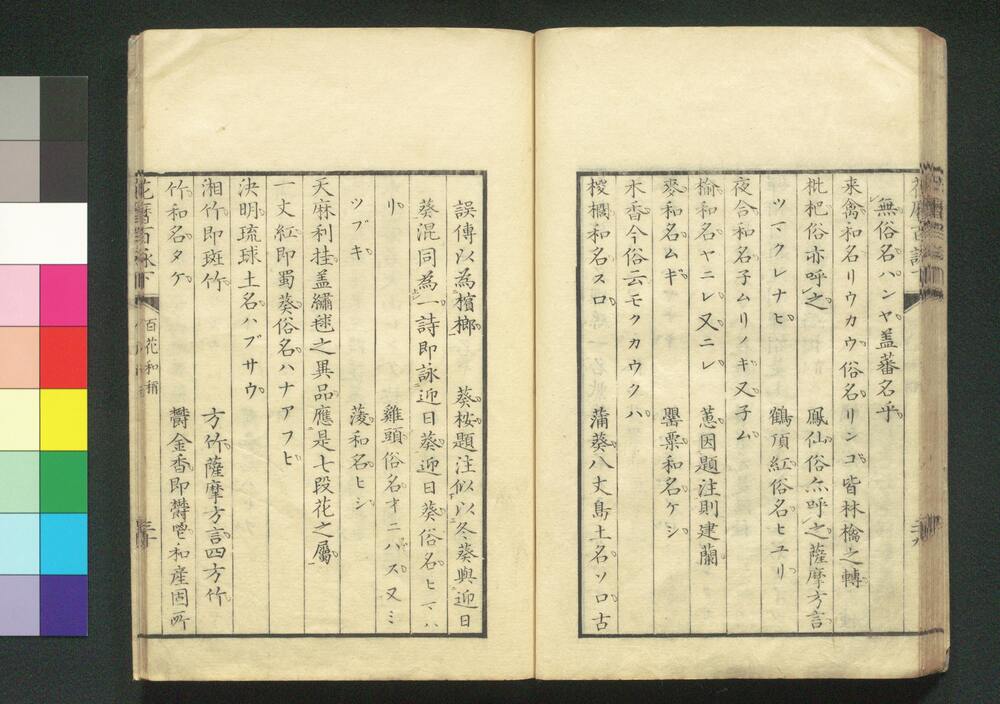 無俗名ハンヤ蓋蕃名乎
来禽和名リウカウ俗名リンゴ皆林檎之轉
枇杷俗亦呼之　鳳仙俗亦呼之薩摩方言
ツマクレナヒ　鶴頂紅俗名ヒユリ
夜合和名子ムリノキ又子ム
楡和名ヤニレ又ニレ　蕙因題注則建蘭
麥和名ムギ　罌粟和名ケシ
木香今俗云モクカウクハ
椶櫚和名スロ　蒲葵八丈島土名ソロ古
誤傳以為檳榔　葵桉題注似以冬葵與迎日
葵混同為一詩即詠迎日葵迎日葵俗名ヒマハ
リ　雞頭俗名オニハス又ミ
ツブキ　菱和名ヒシ
天麻利挂蓋繡毬之異品應是七段花之屬
一丈紅即蜀葵俗名ハナアフヒ
決明琉球土名ハブサウ
湘竹即斑竹　方竹薩摩方言四方竹
竹和名タケ　欝金香即欝鬯和産固所
花暦百詠下
百花和稱